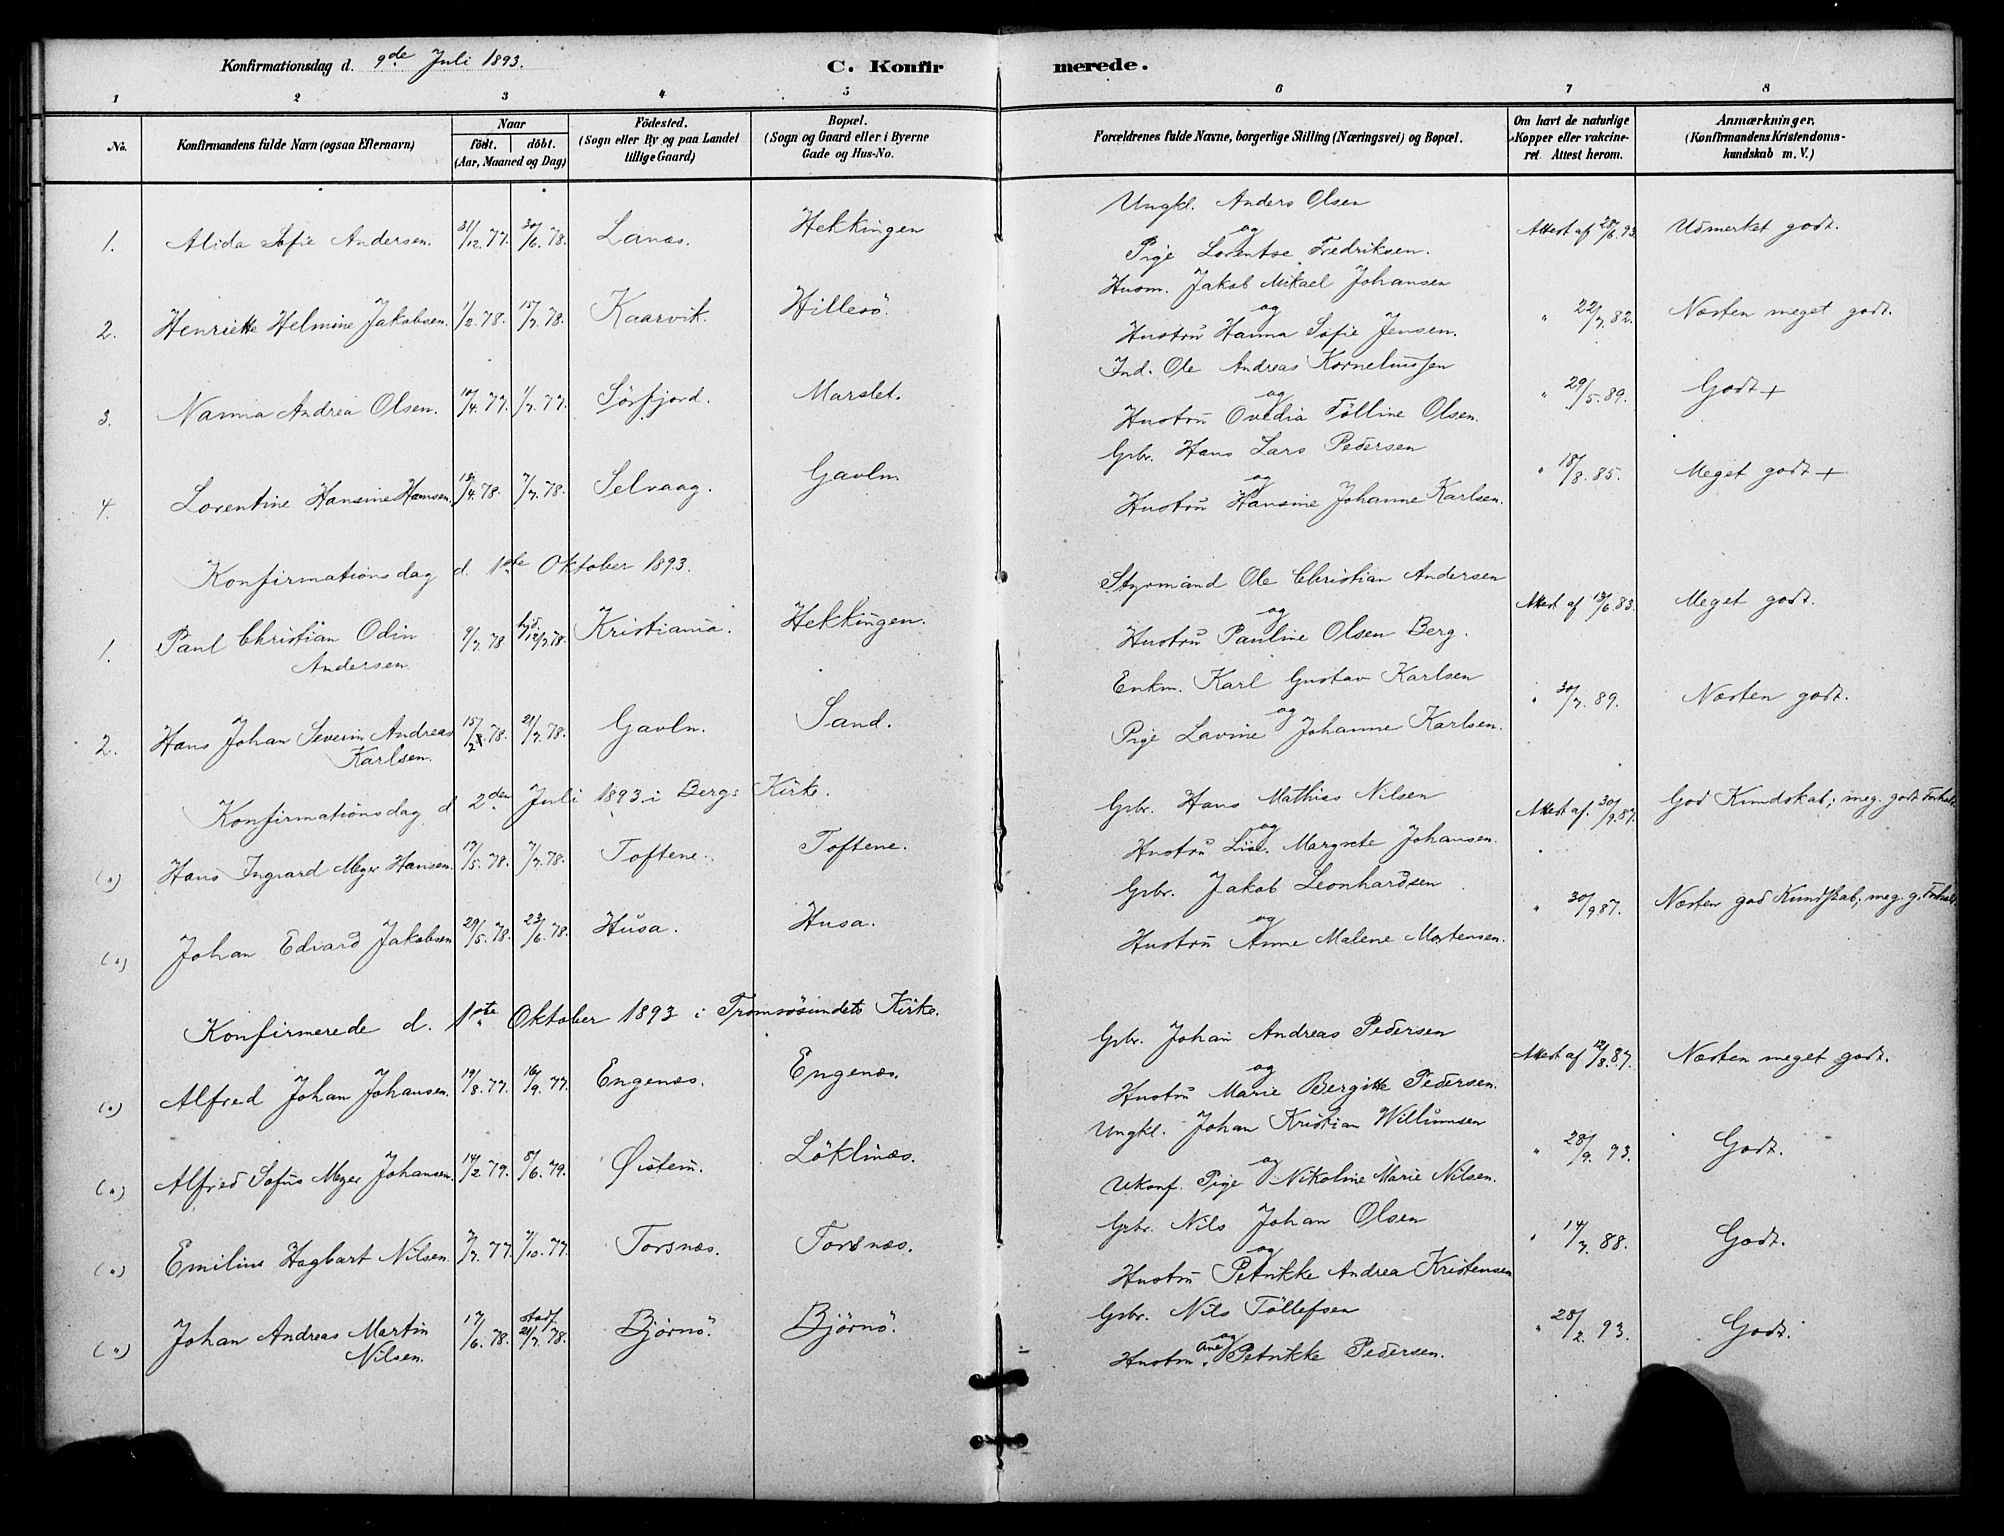 Konfirmationsdag d. 9de Juli 1893.
C. Konfirmerede.
1 2 3 4 5 6 7 8
No.
Konfirmandens fulde Navn (ogsaa Efternavn)
Naar
født. døbt.
(Aar, Maaned og Dag)
Födested.
(Sogn eller By og paa Landet
tillige Gaard)
Bopæl.
(Sogn og Gaard eller i Byerne
Gade og Hus-No.
Forældrenes fulde Navne, borgerlige Stilling (Næringsvei) og Bopæl.
Om havt de naturlige
Kopper eller vakcine-
ret. Attest herom.
Anmærkninger.
(Konfirmandens Kristendoms-
kundskab m. V.)
Ungkl. Anders Olsen
1. Alida Sofie Andersen. 31/12.77. 30/6.78. Lanæs. Hekkingen og Attest af 28/6.93. Udmerket godt.
Pige Lorentse Fredriksen.
Husm. Jakob Mikael Johansen
2. Henriette Helmine Jakobsen. 1/2.78. 15/7.78. Kaarvik. Hillesö. og " 22/7.82. Næsten meget godt.
Hustru Hanna Sofie Jensen.
Ind. Ole Andreas Korneliussen
3. Nanna Andrea Olsen. 10/4.77. 1/7.77. Sörfjord. Marslet. og " 29/5.89. Godt +
Hustru Ovedia Tölline Olsen.
Gbr. Hans Lars Pedersen
4. Lorentine Hansine Hansen. 12/4.78. 7/7.78. Selvaag. Gavln. og " 18/8.85. Meget godt +
Hustru Hansine Johanne Karlsen.
Konfirmationsdag d. 1ste Oktober 1893.
Styrmand Ole Christian Andersen
1. Paul Christian Odin 9/7.78 hjd. 12/7.78. Kristiania. Hekkingen. og Attest af 13/6.83. Meget godt.
Andersen.
Hustru Pauline Olsen Berg.
Enkm. Karl Gustav Karlsen
2. Hans Johan Severin Andreas 15/2.78. 21/7.78. Gavln. Sand. og " 30/7.89. Næsten godt.
Karlsen.
Pige Lavine Johanne Karlsen.
Konfirmationsdag d 2den Juli 1893 i Bergs Kirke.
Gbr. Hans Mathias Nilsen
(") Hans Ingvard Meyer Hansen. 17/5.78. 7/7.78. Toftene. Toftene. og Attest af. 30/9.87. God Kundskab; meg. godt Forhold
Hustru Lise Margrete Johansen.
Gbr. Jakob Leonhardsen
(") Johan Edvard Jakobsen 29/5.78. 23/6.78. Husa. Husa. og " 30/9.87. Næsten god Kundskab; meg. g. Forhold
Hustru Anne Malene Mortensen.
Konfirmerede d. 1ste Oktober 1893 i Tromsösundets Kirke.
Gbr. Johan Andreas Pedersen
(") Alfred Johan Johansen. 19/8.77. 16/9.77. Engenæs. Engenæs. og Attest af 12/8.87. Næsten meget godt.
Hustru Marie Bergitte Pedersen.
Ungkl. Johan Kristian Willumsen
(") Alfred Sofus Meyer Johansen. 14/2.79. 8/6.79. Øistein. Löklinæs. og " 28/9.93. Godt.
Ukonf. Pige Nikoline Marie Nilsen.
Gbr. Nils Johan Olsen
(") Emilius Hagbart Nilsen. 7/7.77. 7/10.77. Torsnæs. Torsnæs. og " 14/7.88. Godt.
Hustru Petrikke Andrea Kristensen
Gbr. Nils Töllefsen
(") Johan Andreas Martin 17/6.78. stadf. 21/7.78. Bjørnö. Bjørnö. og " 28/2.93. Godt.
Nilsen.
Hustru Ane Petrikke Pedersen.